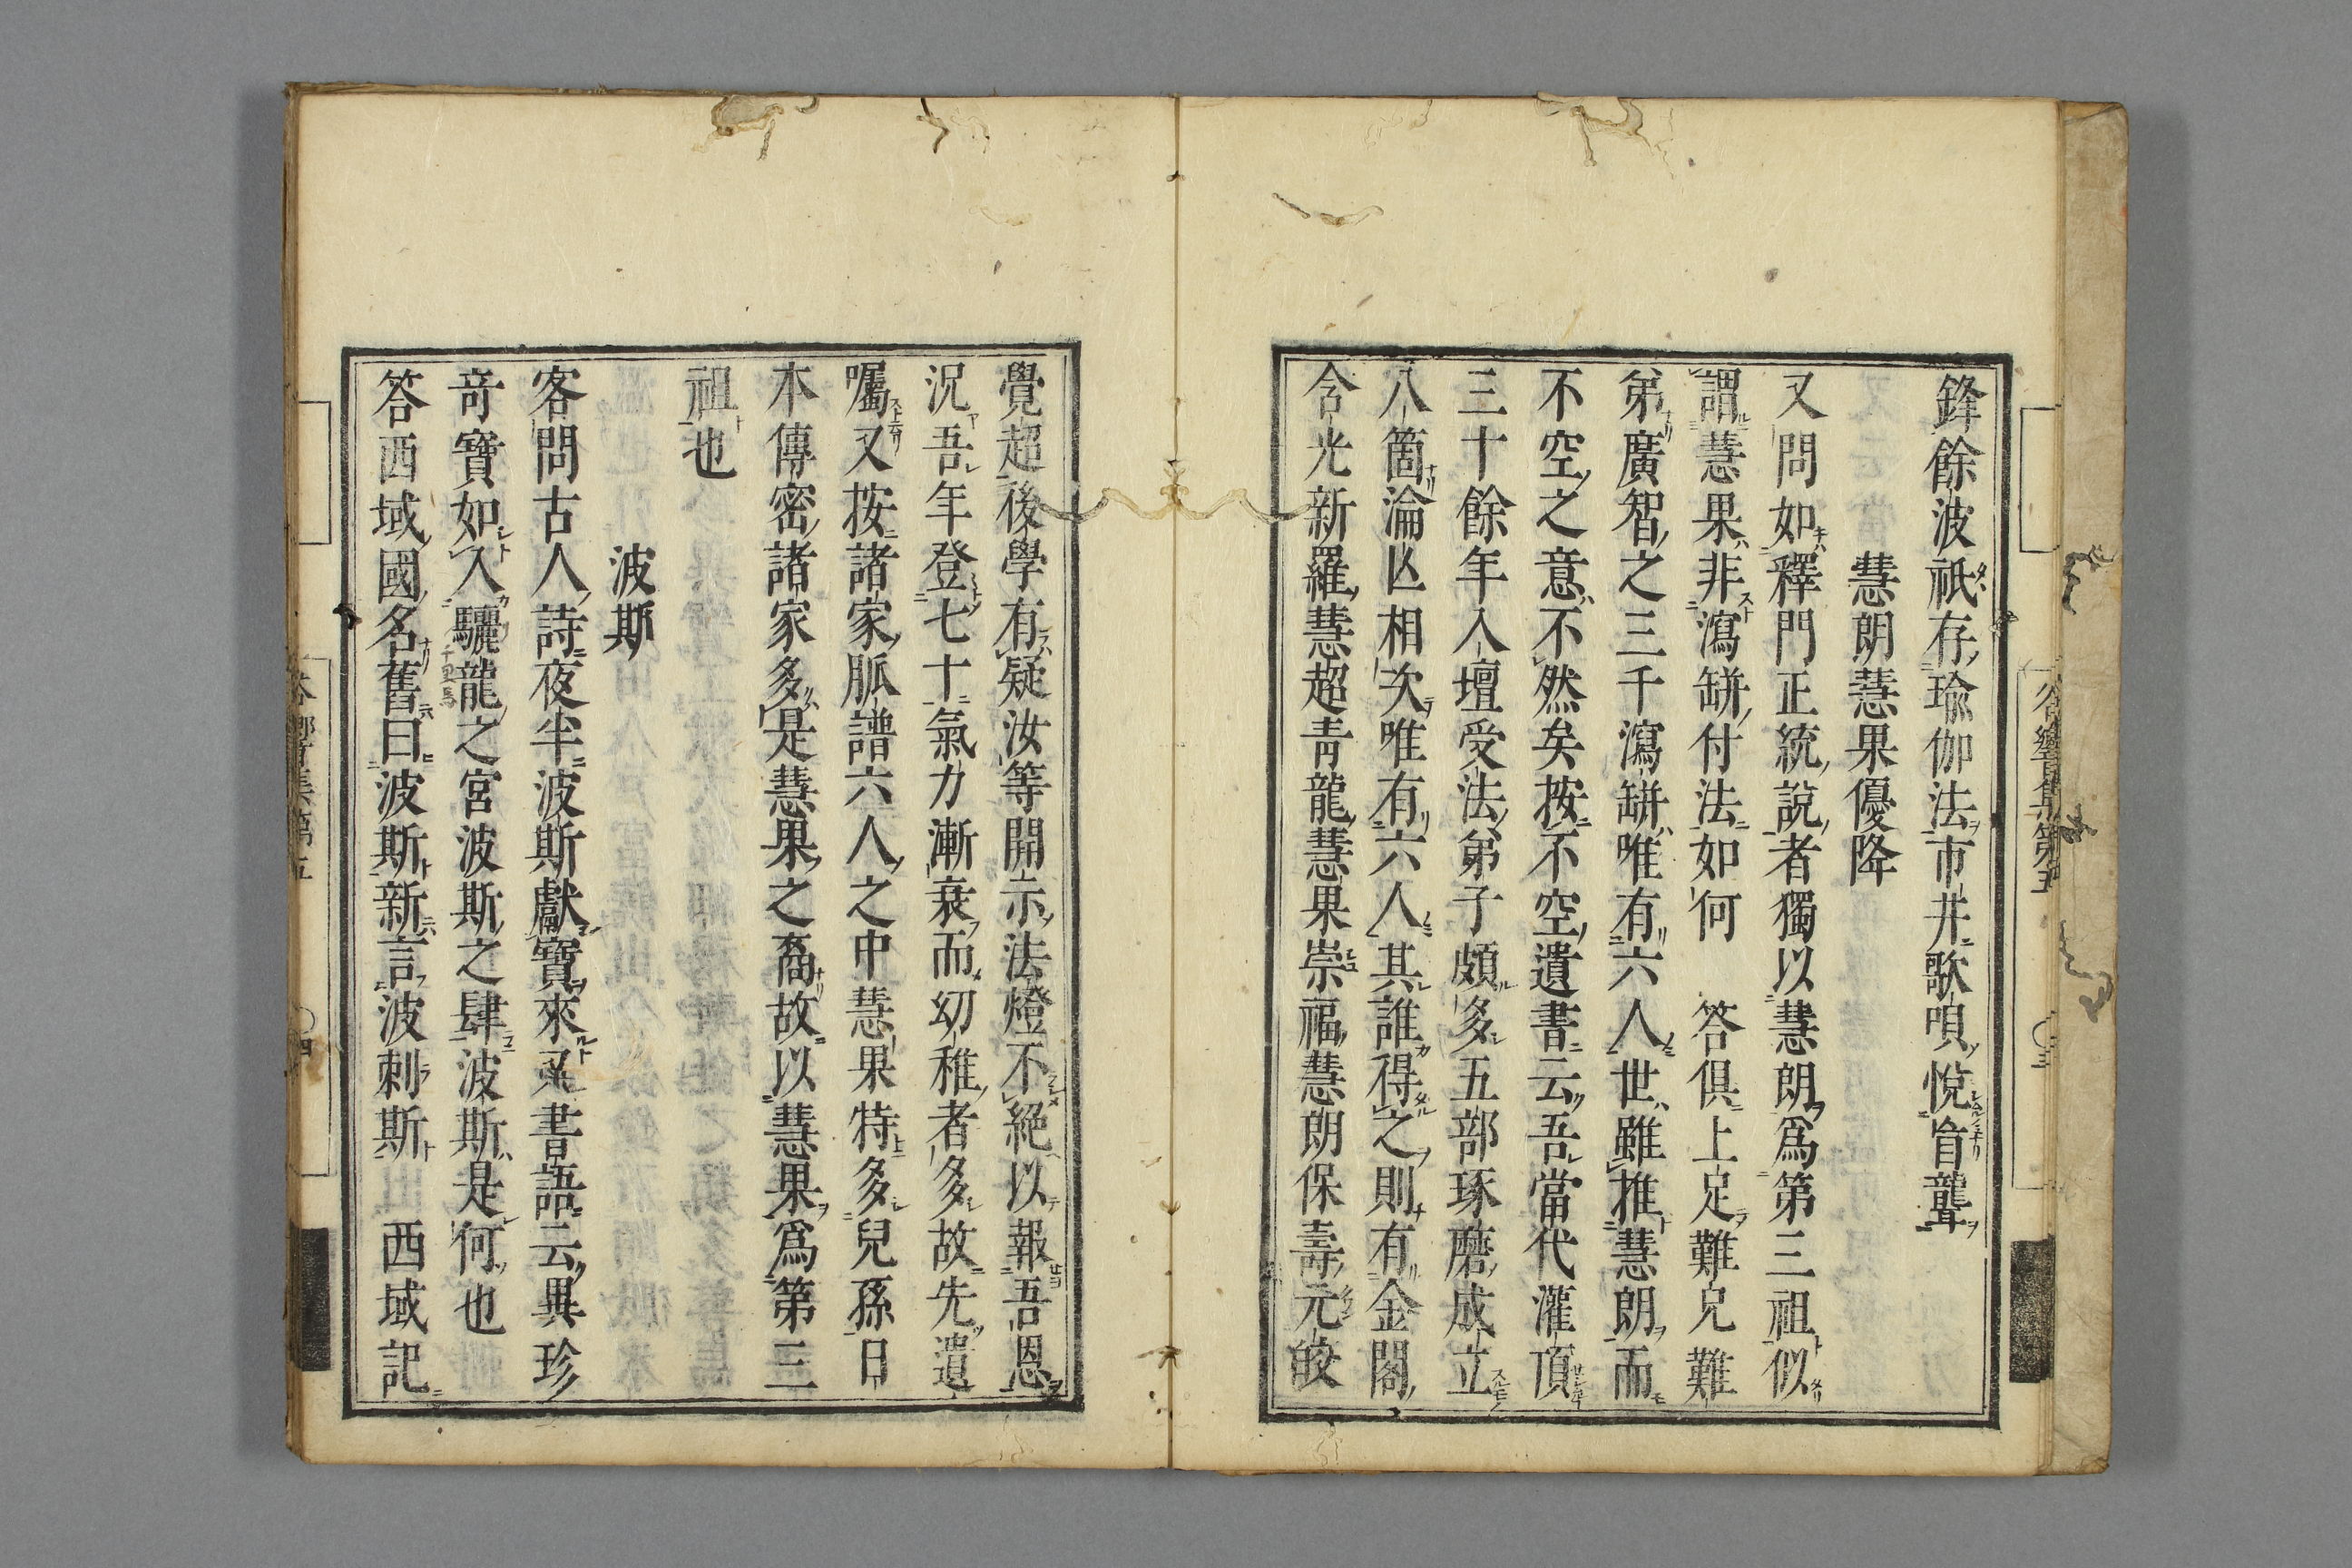 鋒餘波祇存瑜伽法市井歌唄悅盲聾
慧朗慧果優降
又問如釋門正統說者獨以慧朗爲第三祖似
謂慧果非瀉缾付法如何　答俱上足難兄難
弟廣智之三千瀉缾唯有六人世雖推慧朗而
不空之意不然矣按不空遺書云吾當代灌頂
三十餘年入壇受法弟子頗多五部琢磨成立
八箇淪亾相次唯有六人其誰得之則有金閣
含光新羅慧超靑龍慧果崇福慧朗保壽元皎
覺超後學有疑汝等開示法燈不絕以報吾恩
況吾年登七十氣力漸衰而幼稚者多故先遺
囑又按諸家脈譜六人之中慧果特多兒孫日
本傳密諸家多是慧果之裔故以慧果爲第三
祖也
波斯
客問古人詩夜半波斯獻寶來梵書語云異珍
竒寶如入驪龍之宮波斯之肆波斯是何也
答西域國名舊曰波斯新言波剌斯　西域記
谷響集第五　〇三
谷響集第五　〇四